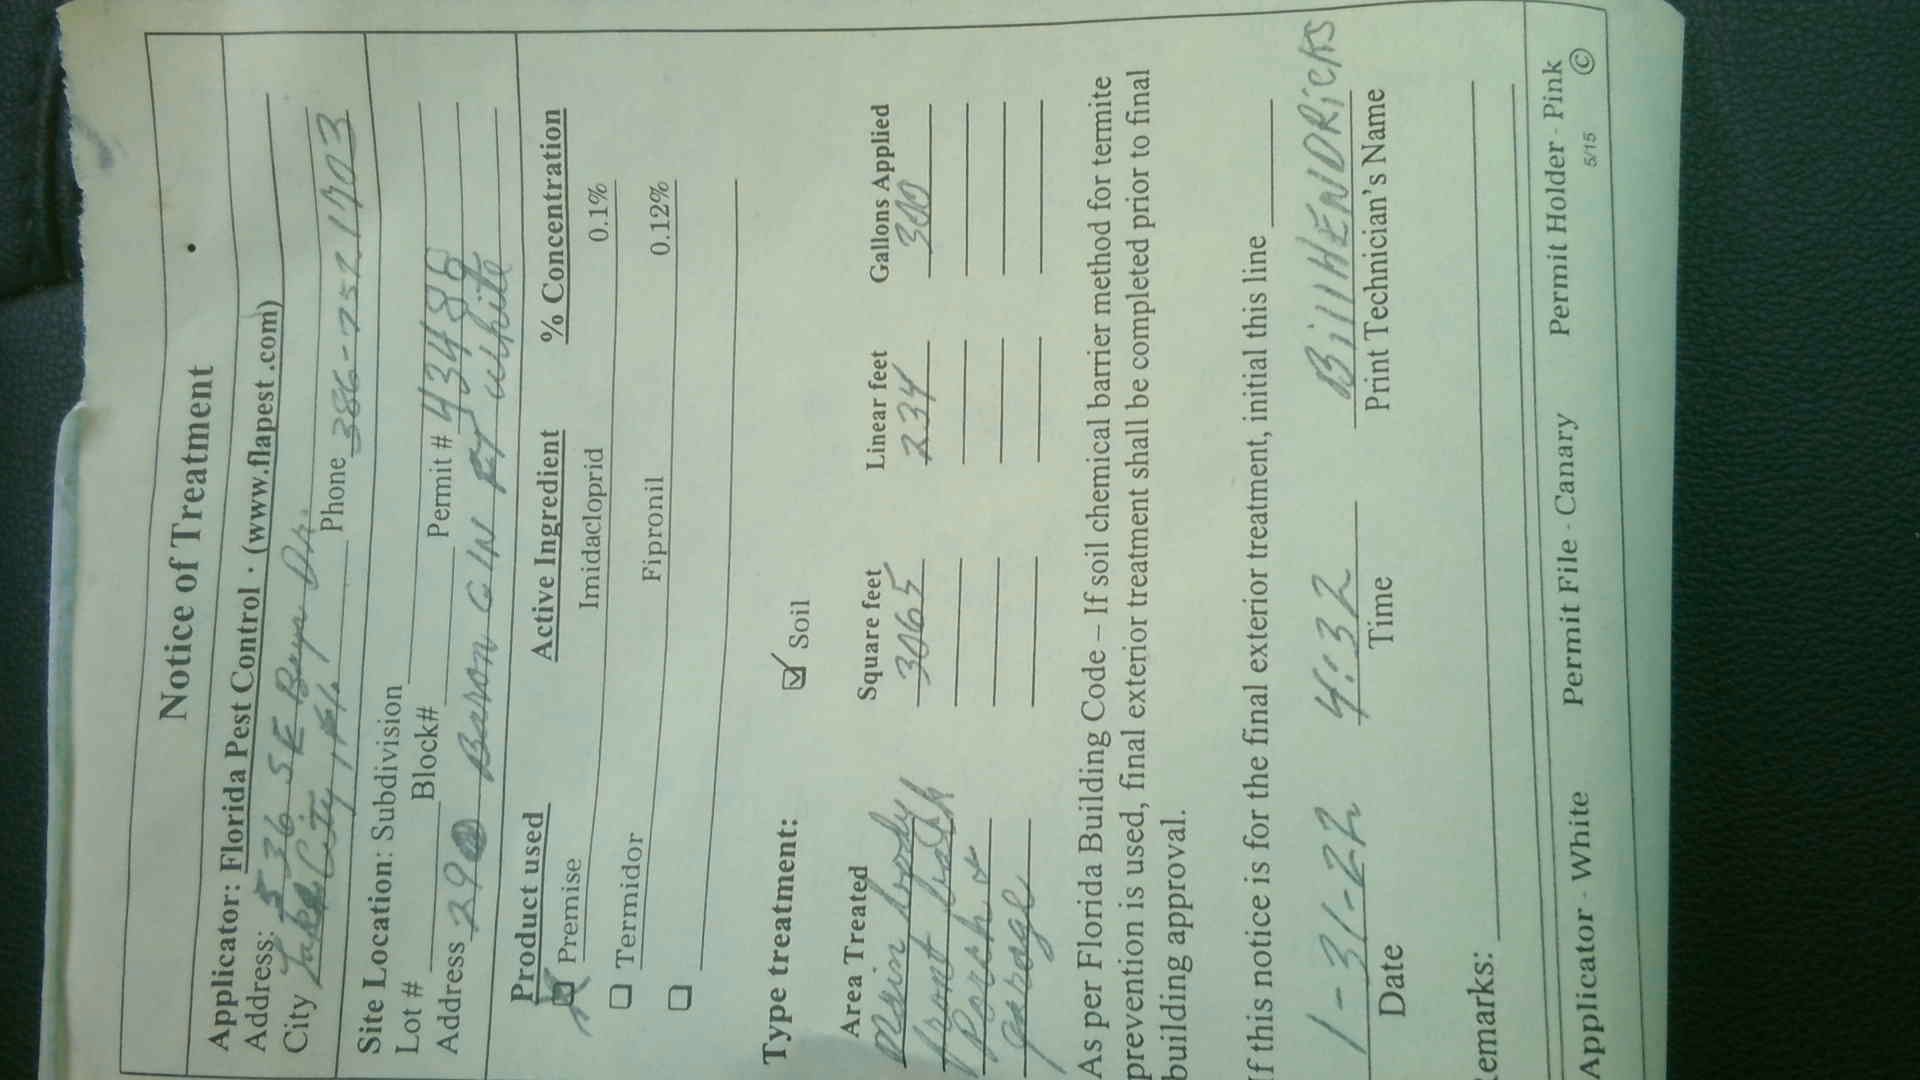 Notice of Treatment
Applicator: Florida Pest Control · (www.flapest.com)
Address: 536 SE Baya Dr.
City Lake City, Fla Phone 386-752 1703
Site Location: Subdivision
Lot # Block# Permit # 43448
Address 29 Baron GIN FT White
Product used Active Ingredient % Concentration
Premise Imidacloprid 0.1%
Termidor Fipronil 0.12%
Type treatment: Soil
Area Treated Square feet Linear feet Gallons Applied
Main body 3065 234 300
front back
Porch &
garage
As per Florida Building Code – If soil chemical barrier method for termite
prevention is used, final exterior treatment shall be completed prior to final
building approval.
If this notice is for the final exterior treatment, initial this line
1-31-22 4:32 Bill HENDRiCKS
Date Time Print Technician's Name
emarks:
Applicator - White Permit File - Canary Permit Holder - Pink
5/15 ©